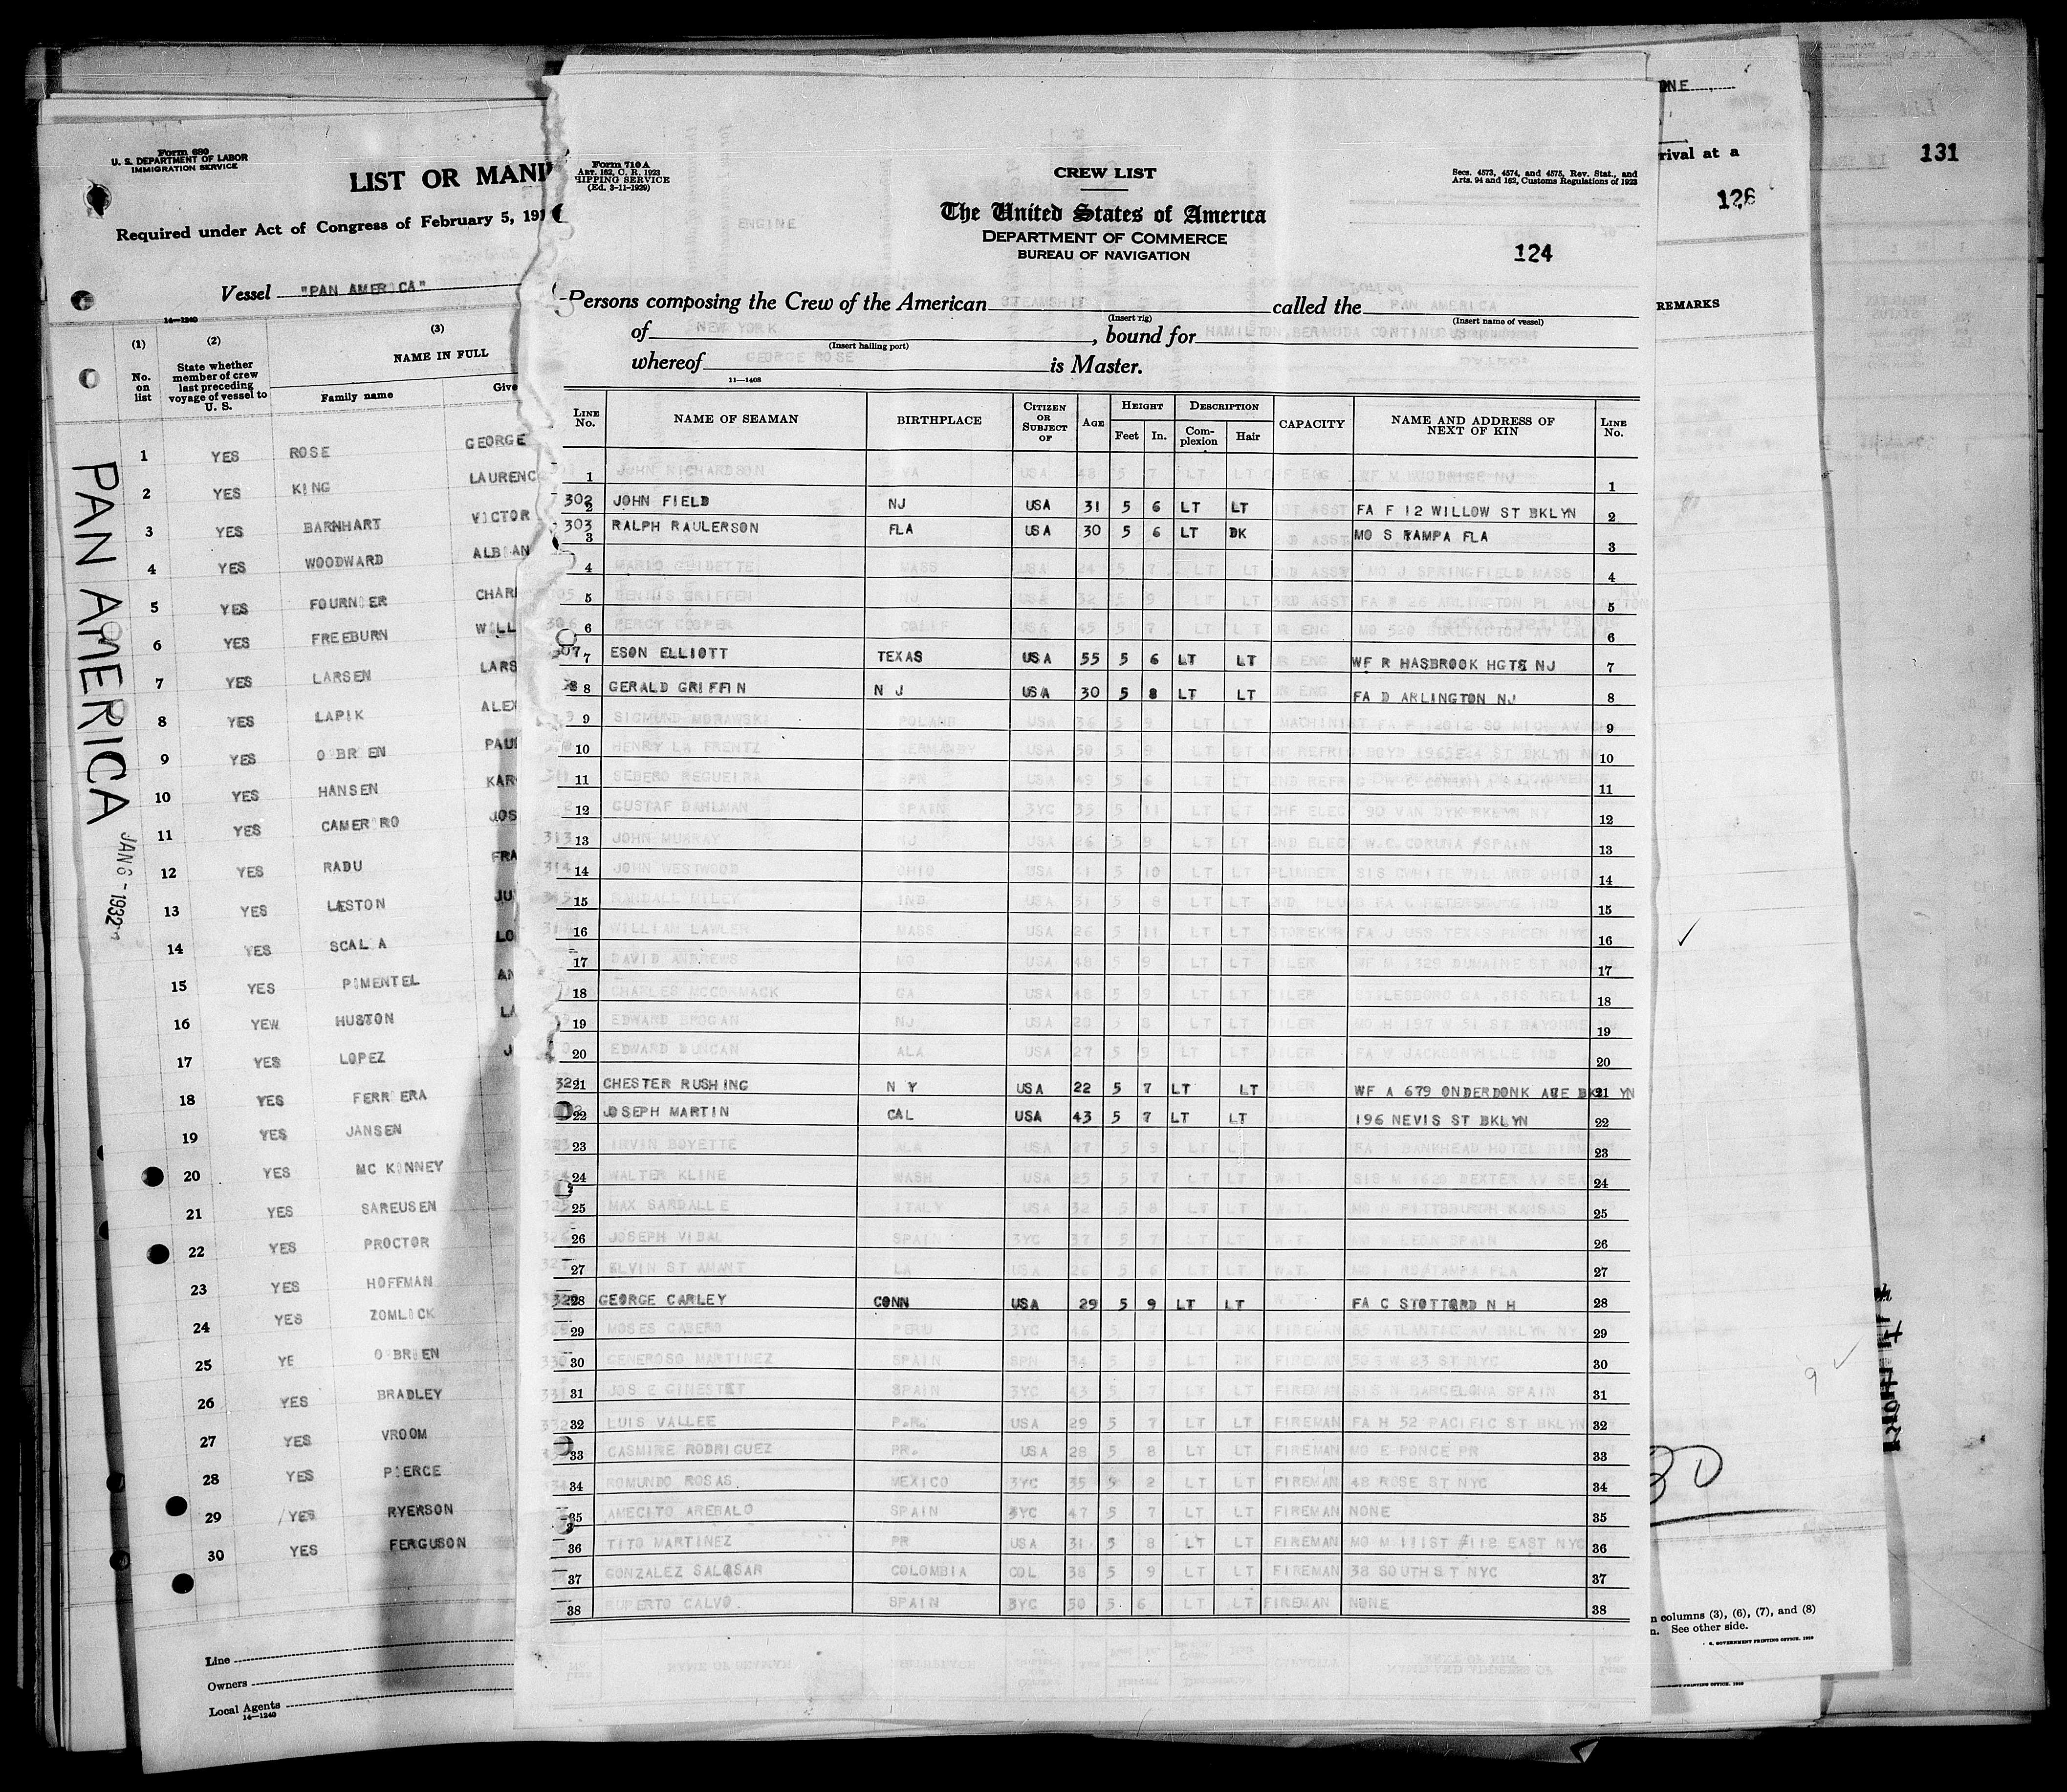 Form 680
U. S. DEPARTMENT OF LABOR
IMMIGRATION SERVICE
LIST OR MANI
Required under Act of Congress of February 5, 191
Vessel "PAN AMERICA"
14—1240
(1) (2) (3)
No. on list
State whether member of crew last preceding voyage of vessel to U. S.
NAME IN FULL
Family name Give
1 YES ROSE GEORGE
2 YES KING LAURENC
3 YES BARNHART VICTOR
4 YES WOODWARD ALBIAN
5 YES FOURNIER CHARL
6 YES FREEBURN WILL
7 YES LARSEN LARS
8 YES LAPIK ALEX
9 YES O BRIEN PAUL
10 YES HANSEN KAR
11 YES CAMERRO JOS
12 YES RADU FRA
13 YES LESTON JU
14 YES SCALIA LO
15 YES PIMENTEL AN
16 YEW HUSTON LA
17 YES LOPEZ J
18 YES FERRIERA
19 YES JANSEN
20 YES MC KINNEY
21 YES SAREUSEN
22 YES PROCTOR
23 YES HOFFMAN
24 YES ZOMLICK
25 YE O BRIEN
26 YES BRADLEY
27 YES VROOM
28 YES PIERCE
29 YES RYERSON
30 YES FERGUSON
Line
Owners
Local Agents
14—1240
PAN AMERICA
JAN 6-1932
Form 710 A
ART. 162, C. R. 1923
HIPPING SERVICE
(Ed. 3-11-1929)
ENGINE
CREW LIST
The United States of America
DEPARTMENT OF COMMERCE
BUREAU OF NAVIGATION
Secs. 4573, 4574, and 4575, Rev. Stat., and
Arts. 94 and 162, Customs Regulations of 1923
124
Persons composing the Crew of the American STEAMSHIP called the PAN AMERICA
(Insert rig) (Insert name of vessel)
of NEW YORK, bound for HAMILTON, BERMUDA CONTINOUS
(Insert hailing port)
whereof GEORGE ROSE is Master.
11—1408
LINE No. NAME OF SEAMAN BIRTHPLACE CITIZEN OR SUBJECT OF AGE HEIGHT Feet In. DESCRIPTION Complexion Hair CAPACITY NAME AND ADDRESS OF NEXT OF KIN LINE No.
1 JOHN RICHARDSON VA USA 48 5 7 LT LT CHF ENG WF M WOODRIGE NJ 1
302 2 JOHN FIELD NJ USA 31 5 6 LT LT 1ST ASST FA F 12 WILLOW ST BKLYN 2
303 3 RALPH RAULERSON FLA USA 30 5 6 LT DK 2D ASST MO S TAMPA FLA 3
4 MASS USA 24 5 7 LT LT 2ND ASST MO J SPRINGFIELD MASS 4
5 GRIFFEN NJ USA 32 5 9 LT 3RD ASST FA 26 ARLINGTON PL 5
306 6 PERCY COOPER CALIF USA 45 5 7 LT LT JR ENG MO 520 6
307 7 ESON ELLIOTT TEXAS USA 55 5 6 LT LT JR ENG WF R HASBROOK HGTS NJ 7
8 8 GERALD GRIFFIN N J USA 30 5 8 LT LT JR ENG FA D ARLINGTON NJ 8
9 SIGMUND MORAWSKI POLAND USA 36 5 9 LT LT MACHINIST FA P 12612 SO MICH AV 9
10 HENRY LA FRENTZ GERMANDY USA 50 5 9 LT LT CHF REFRIG BOYD 1965E24 ST BKLYN N 10
311 11 SEBERO REGUEIRA SPN USA 49 5 6 LT 2ND REFRG W C CORUNA SPAIN 11
12 GUSTAF DAHLMAN SPAIN 3YC 35 5 11 LT LT CHF ELEC 90 VAN DYK BKLYN NY 12
313 13 JOHN MURRAY NJ USA 26 5 9 LT LT 2ND ELEC W.C. CORUNA SPAIN 13
314 14 JOHN WESTWOOD OHIO USA 41 5 10 LT LT PLUMBER SIS CWHITE WILLARD OHIO 14
15 RANDALL MILEY IND USA 31 5 8 LT LT 2ND PLUMB FA G PETERSBURG IND 15
16 WILLIAM LAWLER MASS USA 26 5 11 LT LT STOREKPR FA J USS TEXAS NYC 16
17 DAVID ANDREWS MO USA 48 5 9 LT LT OILER WF M 1329 DUMAINE ST NOR 17
18 CHARLES MCCORMACK GA USA 48 5 9 LT LT OILER SIS NELL 18
19 EDWARD BROGAN NJ USA 28 5 8 LT LT OILER MO H 157 W 51 ST BAYONNE 19
20 EDWARD DUNCAN ALA USA 27 5 9 LT LT OILER FA W JACKSONVILLE IND 20
321 21 CHESTER RUSHING N Y USA 22 5 7 LT LT OILER WF A 679 ONDERDONK AVE BKLYN 21
22 JOSEPH MARTIN CAL USA 43 5 7 LT LT OILER 196 NEVIS ST BKLYN 22
323 23 IRVIN BOYETTE ALA USA 27 5 9 LT LT W.T. FA BANKHEAD HOTEL 23
24 WALTER KLINE WASH USA 25 5 7 LT LT W.T. SIS M 1620 DEXTER AV SEA 24
25 MAX SARDALLE ITALY USA 32 5 8 LT LT W.T. MO N PITTSBURGH KANSAS 25
26 JOSEPH VIDAL SPAIN 3YC 37 5 7 LT LT W.T. MO M LEON SPAIN 26
27 ELVIN ST AMANT LA USA 26 5 6 LT LT W.T. TAMPA FLA 27
328 28 GEORGE CARLEY CONN USA 29 5 9 LT LT FA C STOTTORD N H 28
29 MOSES CABERO PERU 3YC 46 5 7 LT DK FIREMAN 65 ATLANTIC AV BKLYN NY 29
330 30 GENEROSO MARTINEZ SPAIN SPN 34 5 9 LT DK FIREMAN W 23 ST NYC 30
331 31 JOS E GINESTET SPAIN 3YC 43 5 7 LT LT FIREMAN SIS N BARCELONA SPAIN 31
332 32 LUIS VALLEE P.R. USA 29 5 7 LT LT FIREMAN FA H 52 PACIFIC ST BKLYN 32
33 CASMIRE RODRIGUEZ PR. USA 28 5 8 LT LT FIREMAN MO E PONCE PR 33
34 ROMUNDO ROSAS MEXICO 3YC 35 5 2 LT LT FIREMAN 48 ROSE ST NYC 34
35 AMECITO AREBALO SPAIN 3YC 47 5 7 LT LT FIREMAN NONE 35
36 TITO MARTINEZ PR USA 31 5 8 LT LT FIREMAN MO M 111ST #112 EAST NYC 36
37 GONZALEZ SALASAR COLOMBIA COL 38 5 9 LT LT FIREMAN 38 SOUTH ST NYC 37
38 RUPERTO CALVO. SPAIN 3YC 50 5 6 LT LT FIREMAN NONE 38
rival at a
126
REMARKS
n columns (3), (6), (7), and (8)
n. See other side.
131